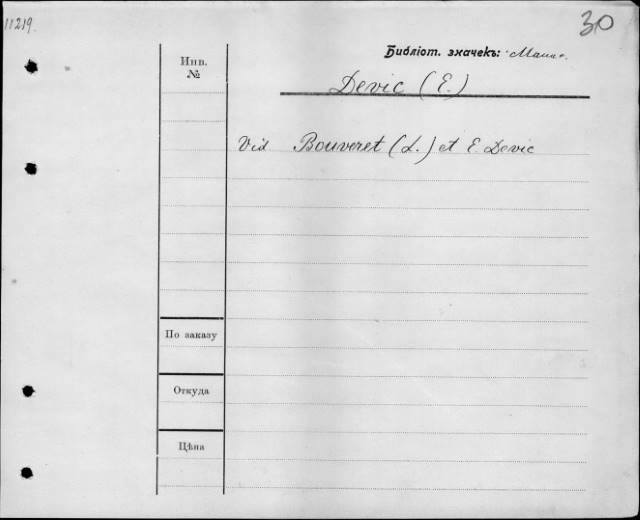 11219.
30
Библіот. значекъ:
Инв.
№
Devic (E.)
Vid Bouveret (L.) et E. Devic
По заказу
Откуда
Цѣна